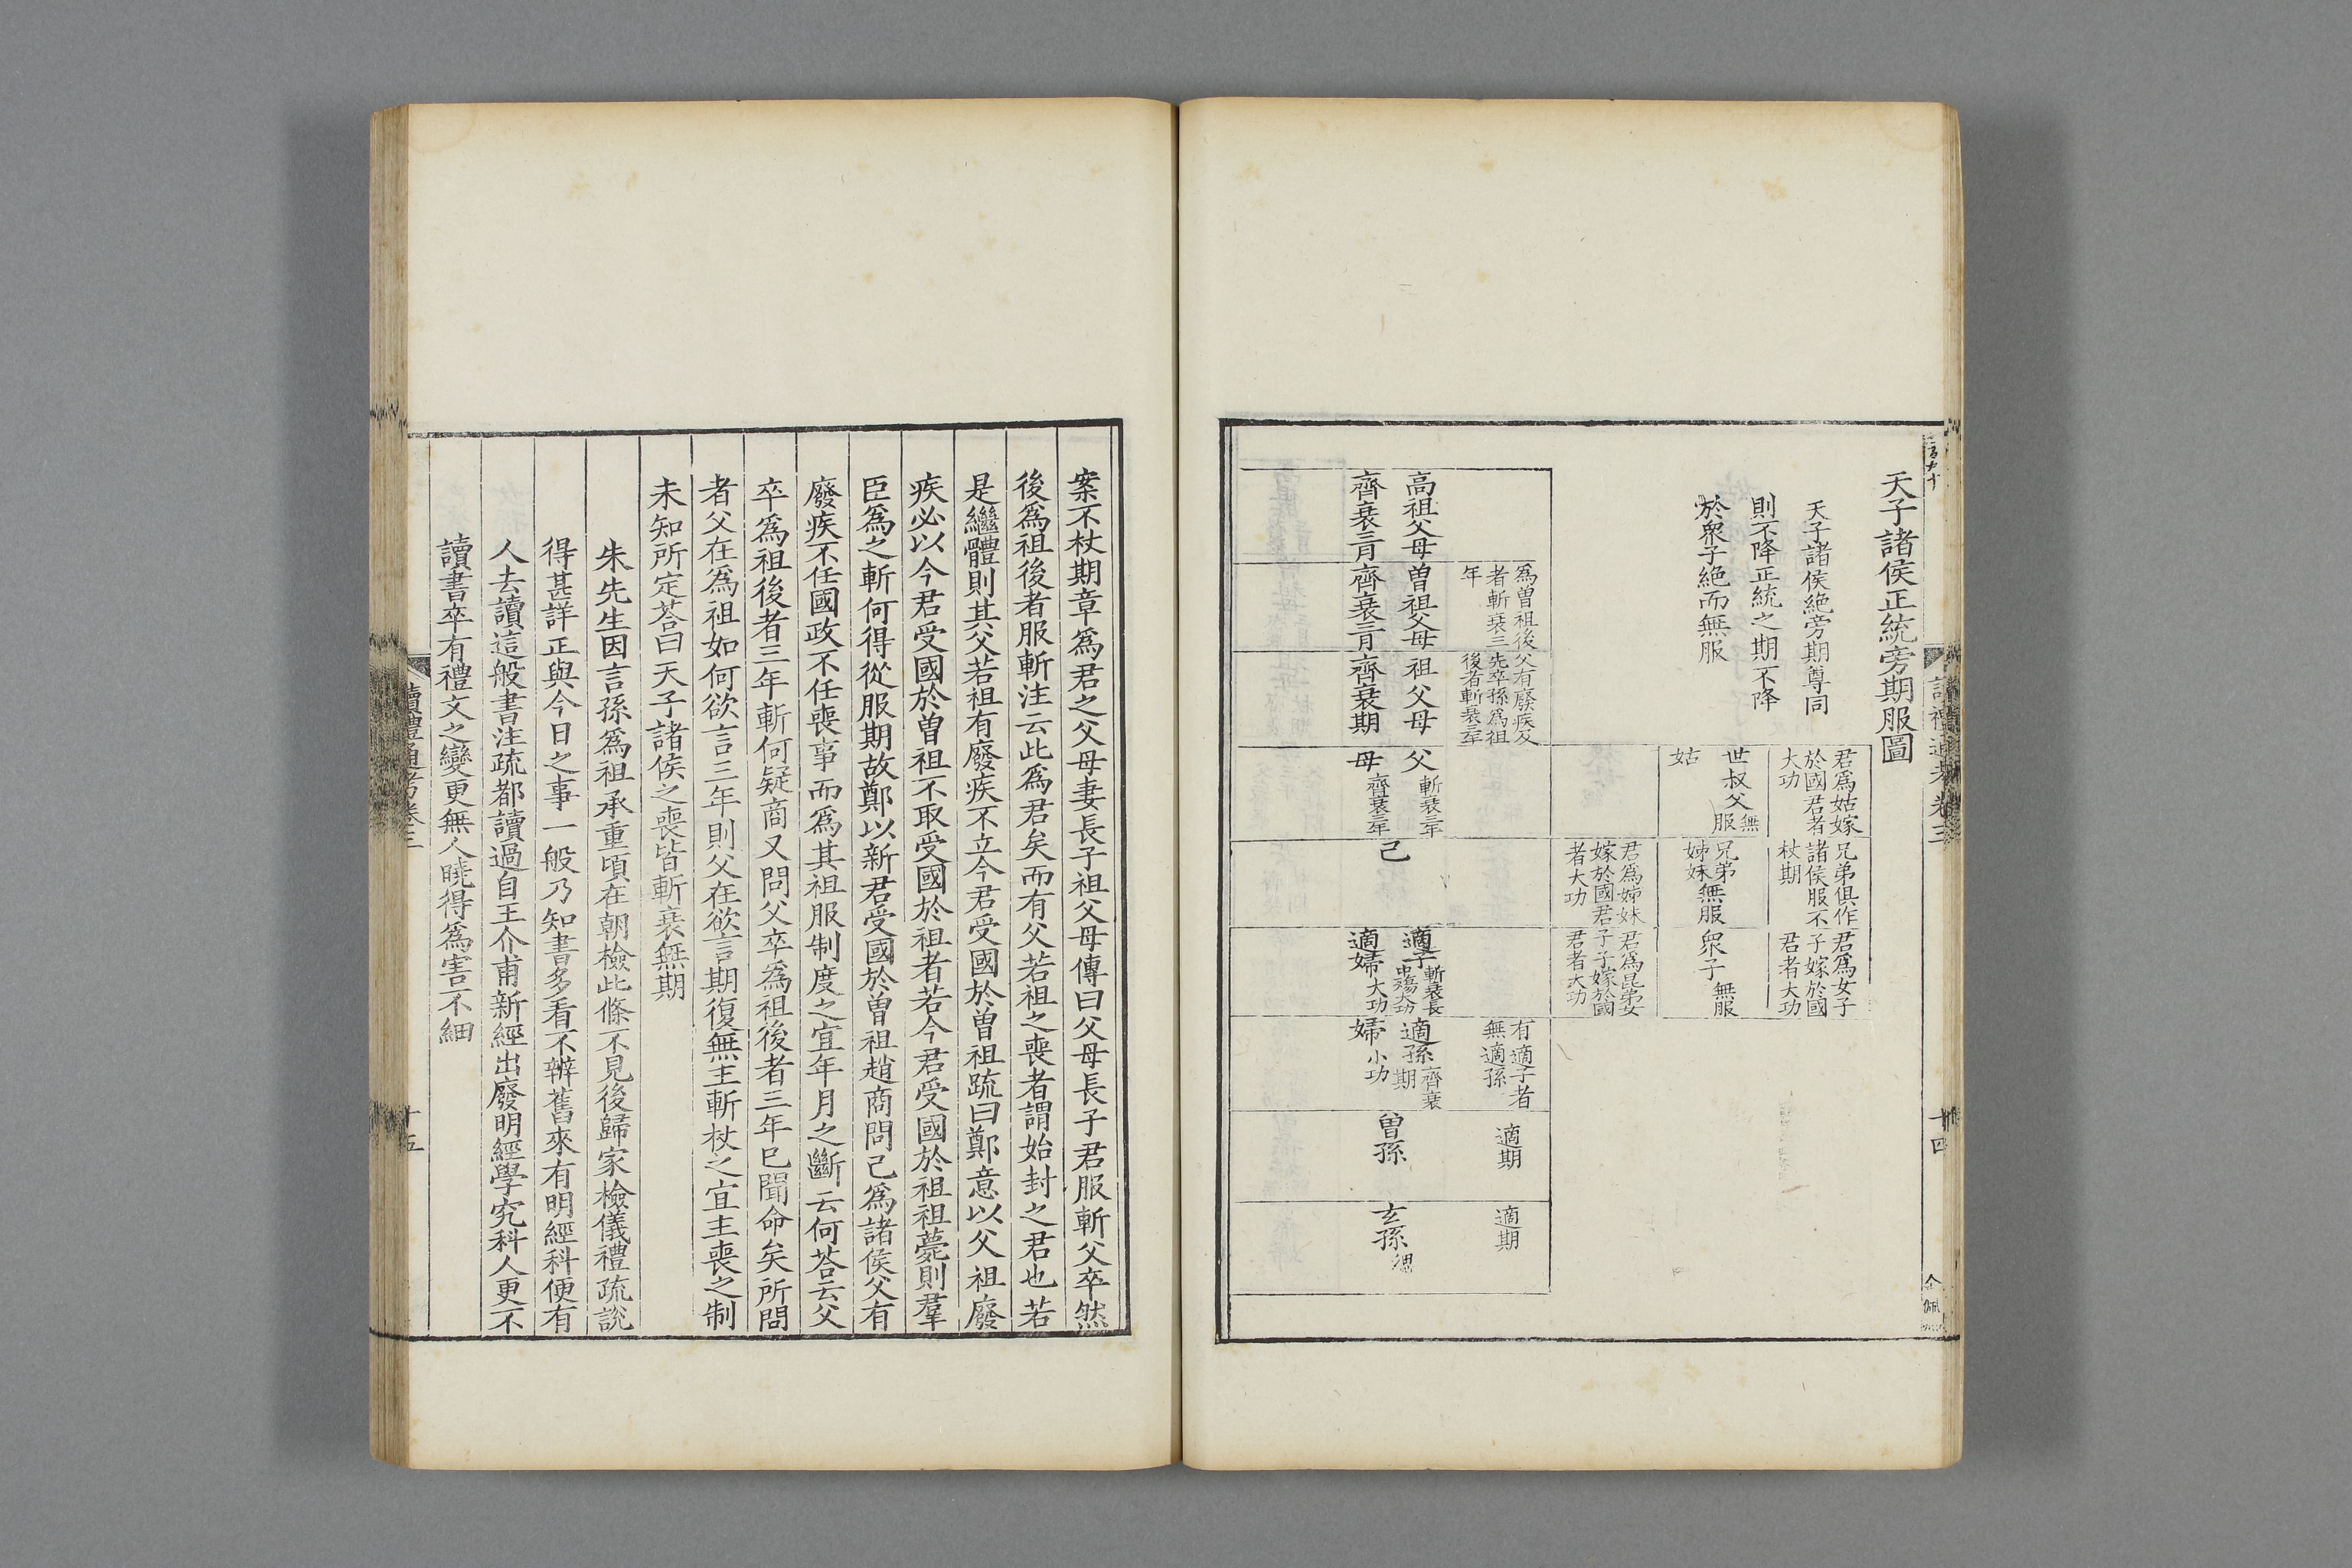 天子諸侯正統旁期服圖
天子諸侯絶旁期尊同
則不降正統之期不降
於衆子絶而無服
君爲姑嫁
於國君者
大功
兄弟俱作
諸侯服不
杖期
君爲女子
子嫁於國
君者大功
世叔父無服
姑
兄弟
姊妹無服
衆子無服
君爲姊妹
嫁於國君
者大功
君爲昆弟女
子子嫁於國
君者大功
爲曾祖後
者斬衰三
年
父有廢疾及
先卒孫爲祖
後者斬衰三年
有適子者
無適孫
適期
適期
高祖父母
齊衰三月
曾祖父母
齊衰三月
祖父母
齊衰期
父斬衰三年
母齊衰三年
己
適子斬衰長中殤大功
適婦大功
適孫齊衰期
婦小功
曾孫
玄孫緦
讀禮通考卷三
十四
案不杖期章爲君之父母妻長子祖父母傳曰父母長子君服斬父卒然
後爲祖後者服斬注云此爲君矣而有父若祖之喪者謂始封之君也若
是繼體則其父若祖有廢疾不立今君受國於曾祖疏曰鄭意以父祖廢
疾必以今君受國於曾祖不取受國於祖者若今君受國於祖祖薨則羣
臣爲之斬何得從服期故鄭以新君受國於曾祖趙商問己爲諸侯父有
廢疾不任國政不任喪事而爲其祖服制度之宜年月之斷云何荅云父
卒爲祖後者三年斬何疑商又問父卒爲祖後者三年已聞命矣所問
者父在爲祖如何欲言三年則父在欲言期復無主斬杖之宜主喪之制
未知所定荅曰天子諸侯之喪皆斬衰無期
朱先生因言孫爲祖承重頃在朝檢此條不見後歸家檢儀禮疏說
得甚詳正與今日之事一般乃知書多看不辨舊來有明經科便有
人去讀這般書注疏都讀過自王介甫新經出廢明經學究科人更不
讀書卒有禮文之變更無人曉得爲害不細
讀禮通考卷三
十五